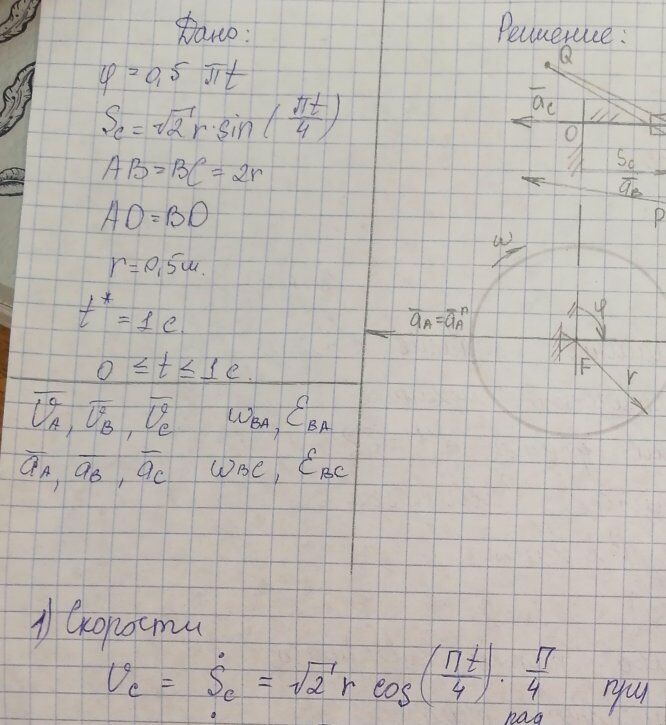 Дано:
φ = 0,5 πt
Sc = √2 r · sin (πt/4)
AB = BC = 2r
AD = BD
r = 0,5 м.
t* = 1 c.
0 ≤ t ≤ 1 c.
V̄A, V̄B, V̄C ωBA, εBA
āA, āB, āC ωBC, εBC
Решение:
Q
āc
O
Sc
āB
P
ω
āA = āAⁿ
φ
F
r
1) Скорости
Vc = Ṡc = √2 r cos (πt/4) · π/4 при
рад